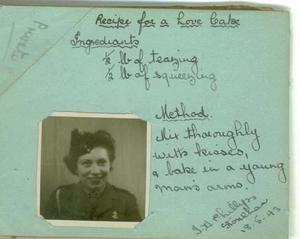 Private
Recipe for a Love Cake
Ingrediants
½ lb of teazing
½ lb of squeezing
Method.
Mix thoroughly
with kisses,
& bake in a young
man's arms.
Phillips
18.5.43